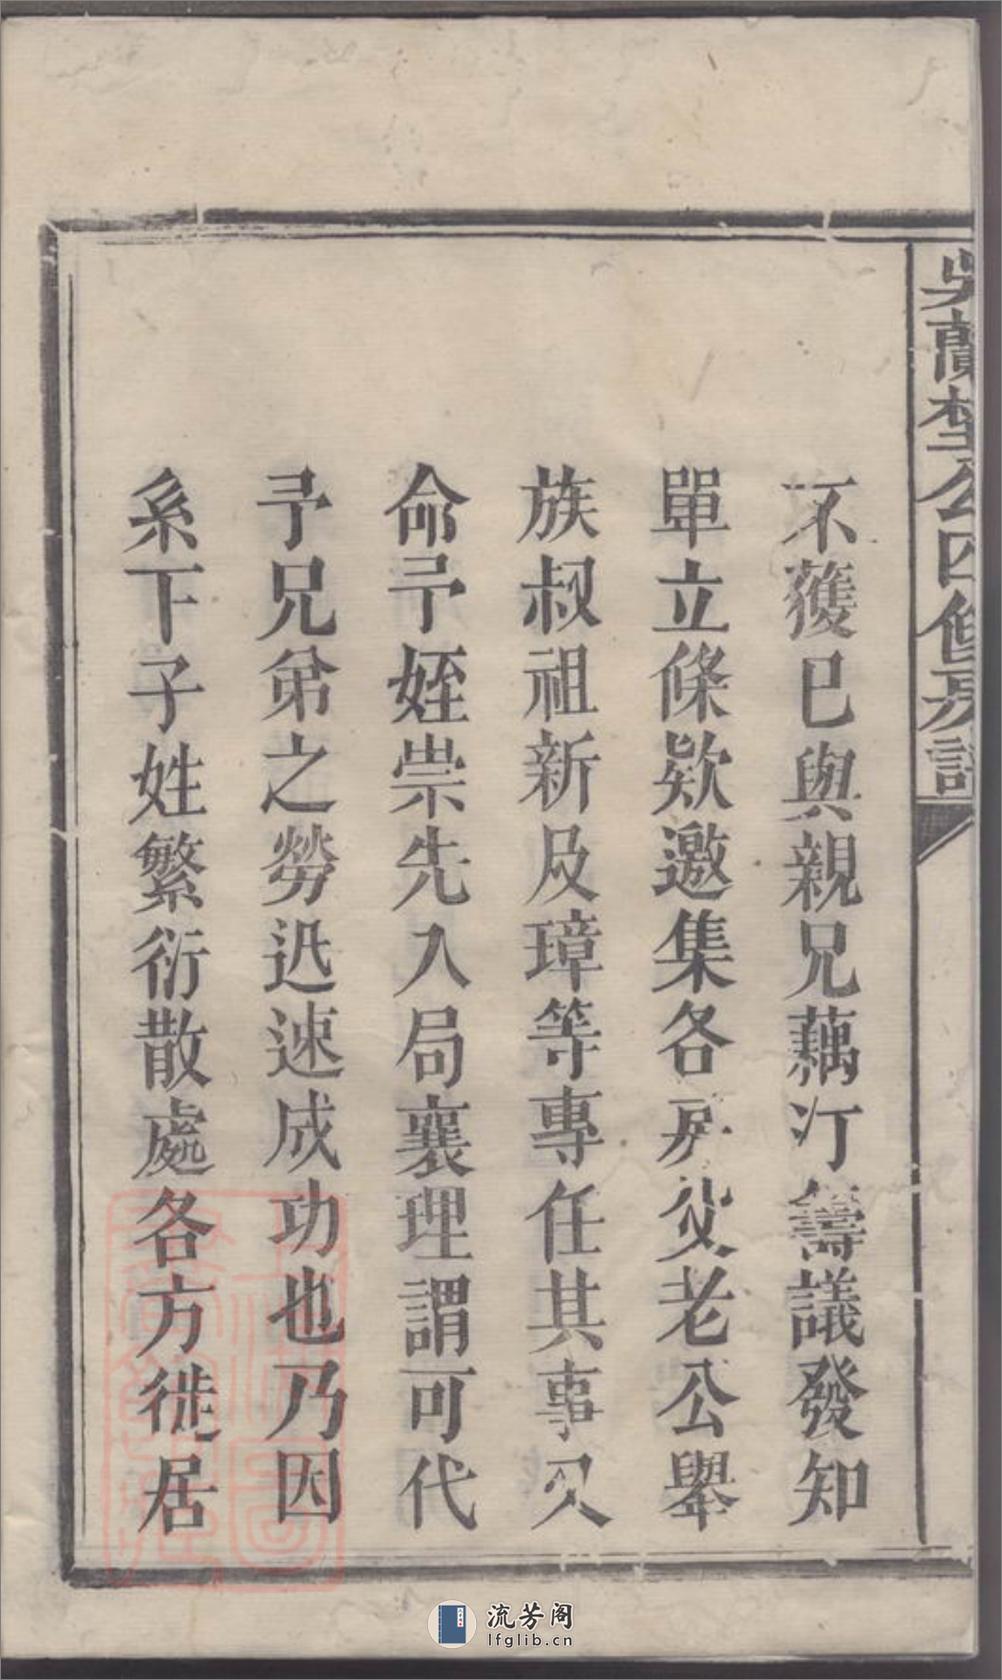 吳蘭埜公四修房譜
不獲已與親兄藕汀籌議發知
單立條欵邀集各房父老公舉
族叔祖新及璋等專任其事又
命予姪崇先入局襄理謂可代
予兄弟之勞迅速成功也乃因
系下子姓繁衍散處各方徙居
流芳阁
lfglib.cn